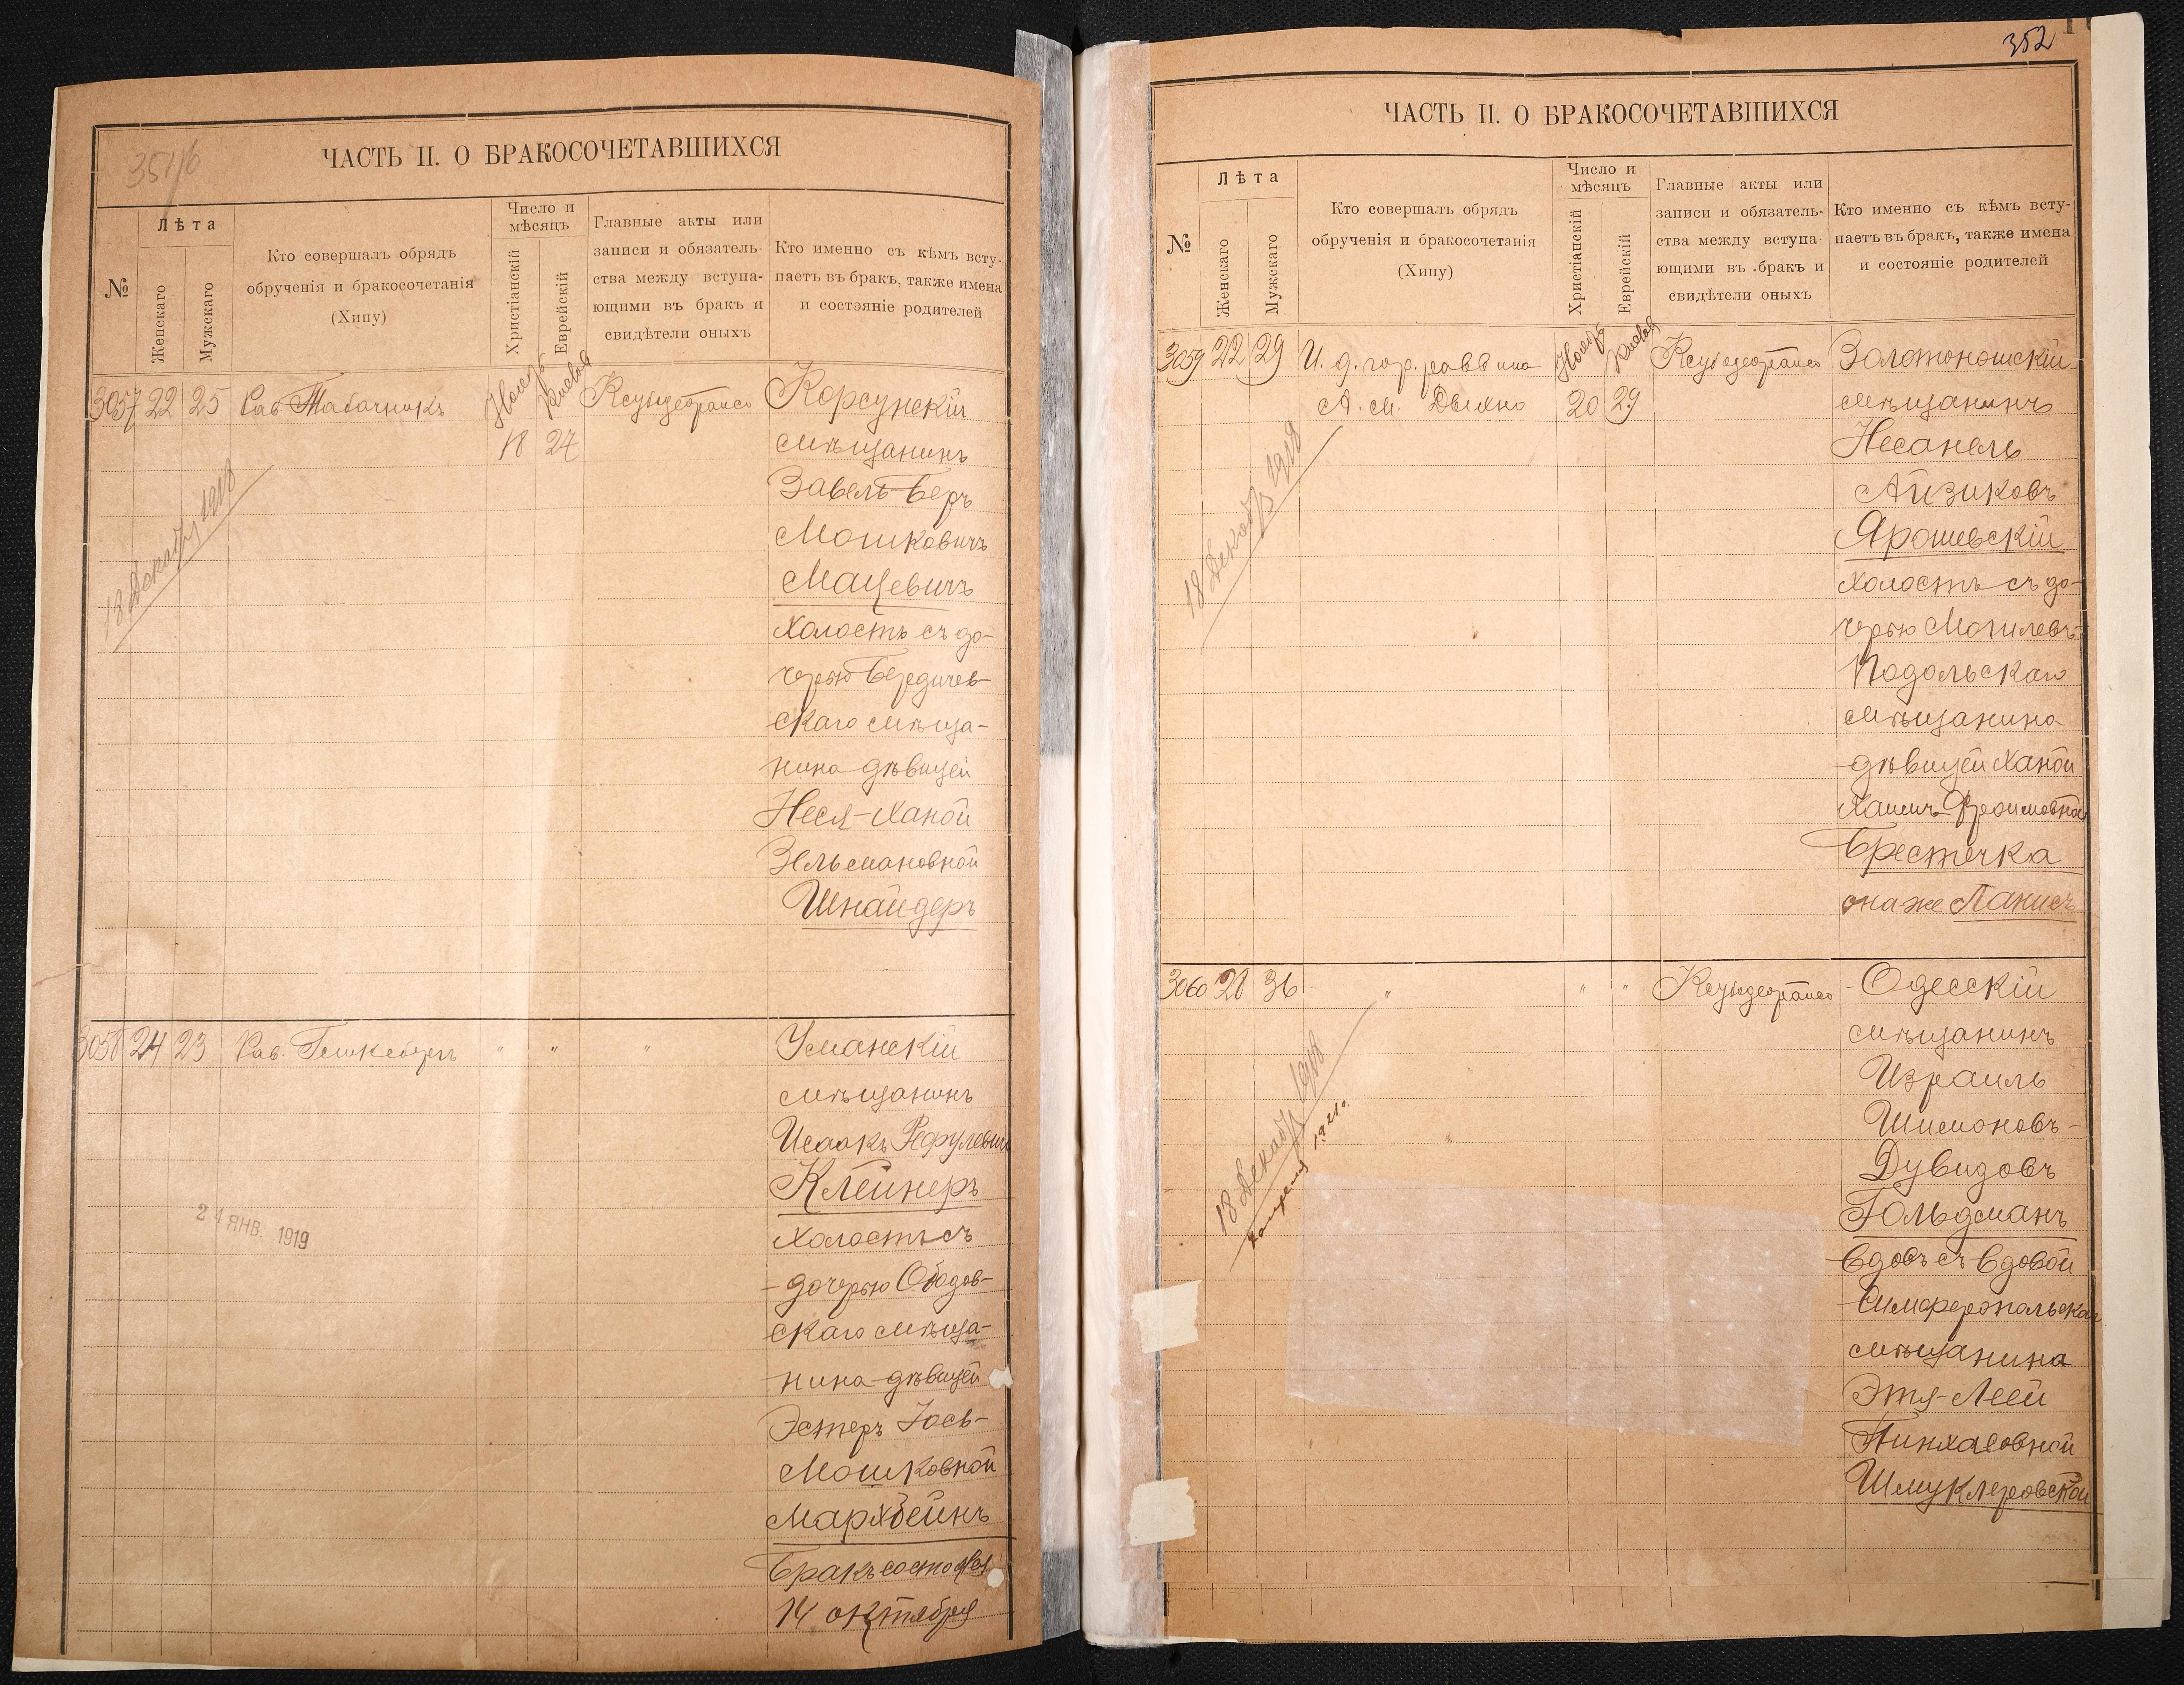 351/б
ЧАСТЬ II. О БРАКОСОЧЕТАВШИХСЯ
№
Лѣта
Женскаго
Мужскаго
Кто совершалъ обрядъ
обрученія и бракосочетанія
(Хипу)
Число и
мѣсяцъ
Христіанскій
Еврейскій
Главные акты или
записи и обязатель-
ства между вступа-
ющими въ бракъ и
свидѣтели оныхъ
Кто именно съ кѣмъ всту-
паетъ въ бракъ, также имена
и состояніе родителей
3057 22 25 Рав Табачникъ
18 24
Корсунскій
мѣщанинъ
Завель-Беръ
Мошковичъ
Мацевичъ
холостъ съ до-
черью Бердичев-
скаго мѣща-
нина дѣвицей
Неся-Ханой
Зельмановной
Шнайдеръ
18 Декабрь 1918
3058 24 23 Рав.
" " "
Уманскій
мѣщанинъ
Исаакъ
Клейнеръ
холостъ съ
дочерью Ободов-
скаго мѣща-
нина дѣвицей
Эстеръ Іось-
Мошковной
Бракъ состоялся
14 октября
24 ЯНВ. 1919
352
ЧАСТЬ II. О БРАКОСОЧЕТАВШИХСЯ
№
Лѣта
Женскаго
Мужскаго
Кто совершалъ обрядъ
обрученія и бракосочетанія
(Хипу)
Число и
мѣсяцъ
Христіанскій
Еврейскій
Главные акты или
записи и обязатель-
ства между вступа-
ющими въ бракъ и
свидѣтели оныхъ
Кто именно съ кѣмъ всту-
паетъ въ бракъ, также имена
и состояніе родителей
3059 22 29 И. д. гор. раввина
А. М.
20 29
Золотоношскій
мѣщанинъ
Несанель
Айзиковъ
Ярошевскій
холостъ съ до-
черью Могилевъ-
Подольскаго
мѣщанина
дѣвицей Ханой
Хаимъ-Фроимовной
Брестечка
она же Ланисъ
18 Декабрь 1918
3060 28 36 " " "
Одесскій
мѣщанинъ
Израиль
Шимоновъ-
Дувидовъ
Гольдманъ
вдовъ съ вдовой
Симферопольска
мѣщанина
Этя-Леей
Пинхасовной
Шмуклеровской
18 Декабрь 1918
1921 г.